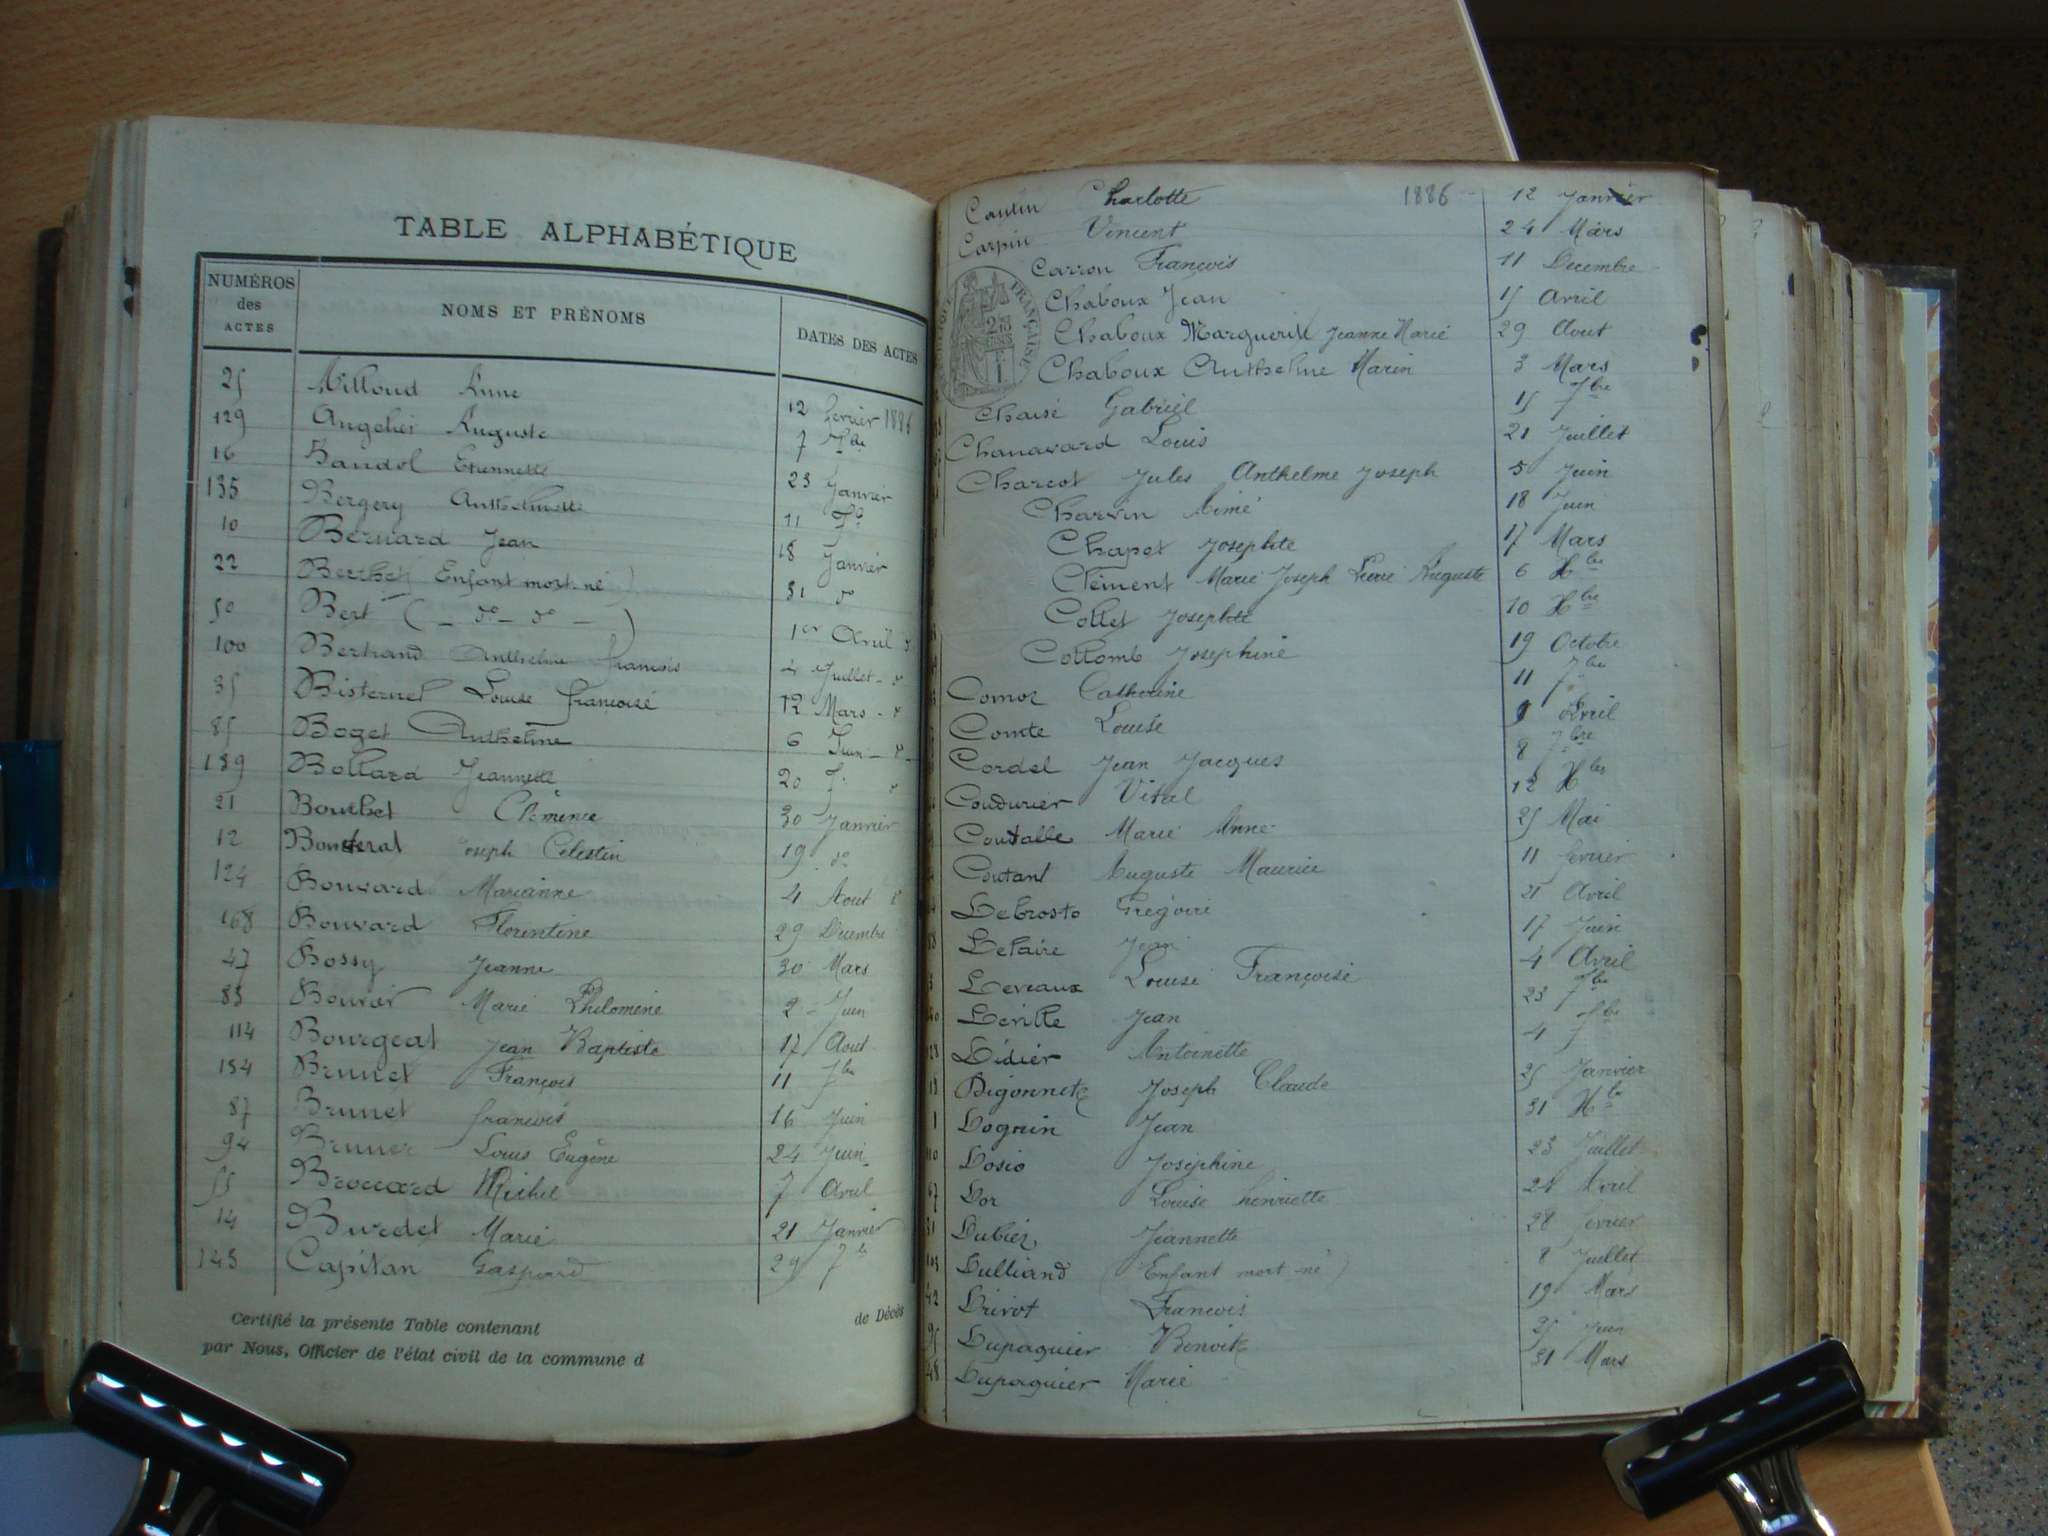 TABLE ALPHABÉTIQUE
NUMÉROS des ACTES NOMS ET PRÉNOMS DATES DES ACTES
25 Milloud Anne 12 fevrier 1886
129 Auguste 7 7bre
16 Baudol Etiennette 23 Janvier
135 Bergery Anthelmette 11
10 Bernard Jean 18 Janvier
22 Berthet (Enfant mort-né) 31 do
50 Bert ( _ do _ do _ ) 1er Avril
100 Bertrand Anthelme françois 4 Juillet
35 Louise françoise 12 Mars
85 Boget Anthelme 6 Juin
139 Bollard Jeannette 20
21 Bouchet Clémence 30 Janvier
12 Joseph Célestin 19 do
124 Bouvard Marianne 4 Aout
168 Bouvard Florentine 29 Décembre
47 Bossy Jeanne 30 Mars
83 Bouvier Marie Philomène 2 Juin
114 Bourgeat Jean Baptiste 17 Aout
134 Brunet François 11 7bre
87 Brunet françois 16 Juin
94 Brunet Louis Eugène 24 Juin
55 Broccard Michel 7 Avril
14 Burdet Marie 21 Janvier
143 Capitan Gaspard 29 7bre
Certifié la présente Table contenant de Décès
par Nous, Officier de l'état civil de la commune d
Cantin Charlotte 1886 12 Janvier
Carpin Vincent 24 Mars
Carron François 11 Decembre
Chaboux Jean 15 Avril
Chaboux Marguerite Jeanne Marie 29 Aout
Chaboux Anthelme Marin 3 Mars
Chaisé Gabriel 15 7bre
Chanavard Louis 21 Juillet
Charcot Jules Anthelme Joseph 5 Juin
Charvin Aimé 18 Juin
Chapet Josephte 17 Mars
Clément Marie Joseph Pierre Auguste 6 Xbre
Collet Josephte 10 Xbre
Collomb Josephine 19 Octobre
Comoz Catherine 11 7bre
Comte Louise 9 Avril
Cordel Jean Jacques 8 7bre
Coudurier Vital 12 Xbre
Coutalle Marie Anne 25 Mai
Coutant Auguste Maurice 11 fevrier
Debrosto Grégoire 21 Avril
Delaire Jean 17 Juin
Deveaux Louise Françoise 4 Avril
Déville Jean 23 7bre
Didier Antoinette 4
Digonnetz Joseph Claude 25 Janvier
Dognin Jean 31 Xbre
Dosio Joséphine 23 Juillet
67 Dor Louise henriette 21 Avril
31 Dubiez Jeannette 28 fevrier
103 Dulliand (Enfant mort-né) 8 Juillet
42 Drivot François 19 Mars
95 Dupaquier Benoite 25 Juin
48 Dupaquier Marie 31 Mars